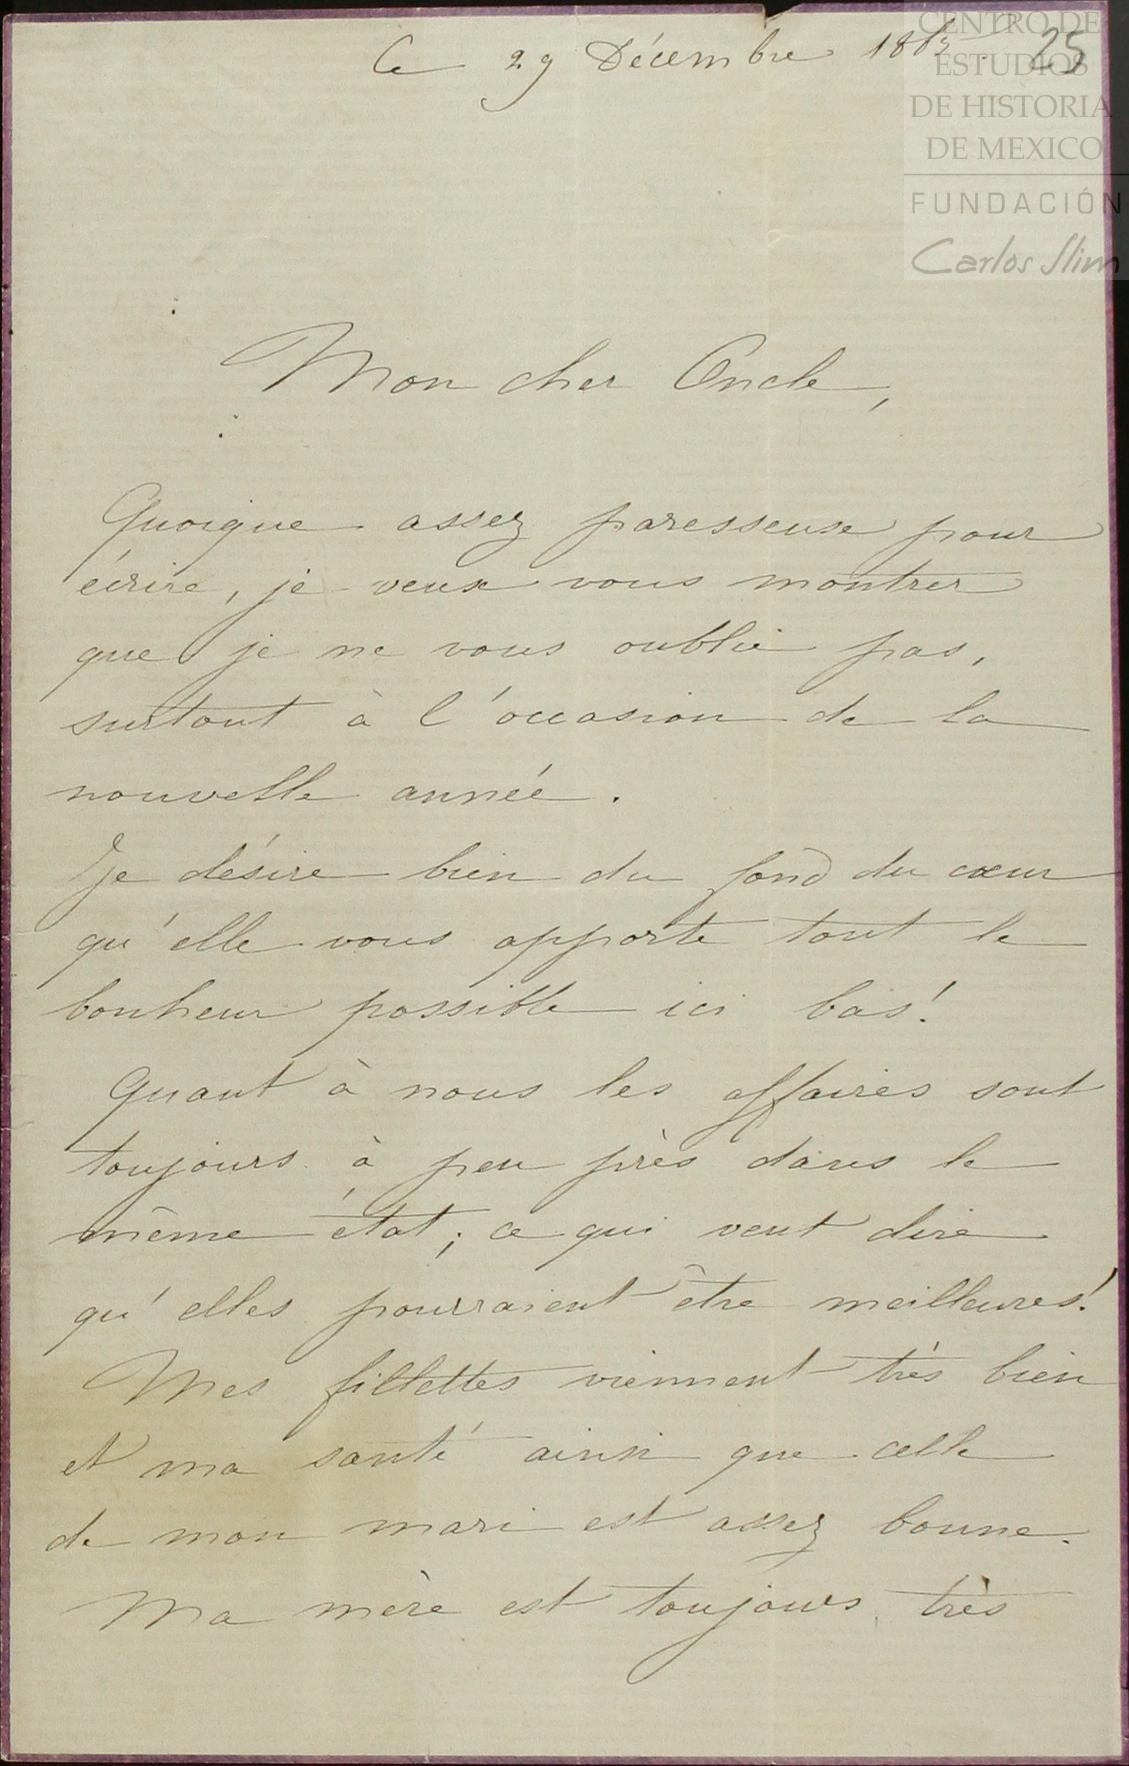 Ce 29 Décembre 25
CENTRO DE
ESTUDIOS
DE HISTORIA
DE MEXICO
FUNDACIÓN
Carlos Slim
Mon cher Oncle,
Quoique assez paresseuse pour
écrire, je veux vous montrer
que je ne vous oublie pas,
surtout à l'occasion de la
nouvelle année.
Je désire bien du fond du cœur
qu'elle vous apporte tout le
bonheur possible ici bas!
Quant à nous les affaires sont
toujours à peu près dans le
même état; ce qui veut dire
qu'elles pourraient être meilleures!
Mes fillettes viennent très bien
et ma santé ainsi que celle
de mon mari est assez bonne.
Ma mère est toujours très